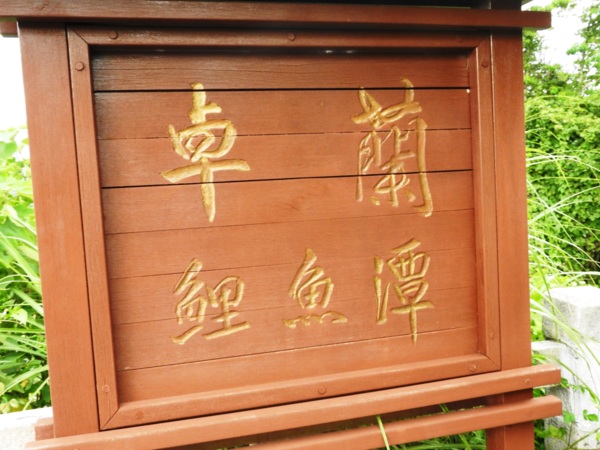 卓蘭
鯉魚潭